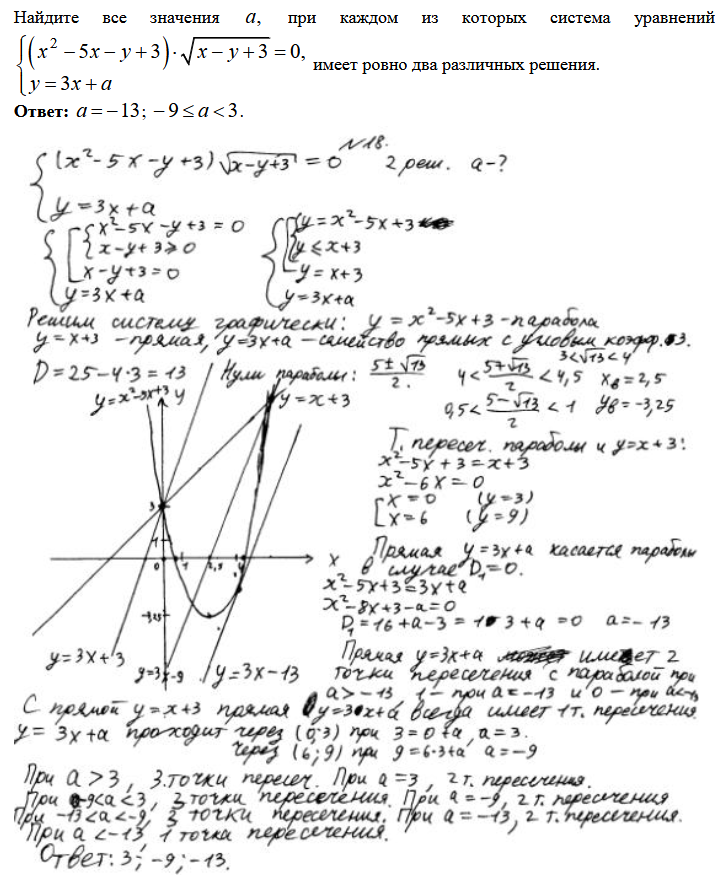 Найдите все значения a, при каждом из которых система уравнений
{(x² − 5x − y + 3)·√(x − y + 3) = 0,
y = 3x + a
имеет ровно два различных решения.
Ответ: a = −13; −9 ≤ a < 3.
N18.
{(x² − 5x − y + 3) √(x−y+3) = 0   2 реш.   a−?
y = 3x + a
{[{x² − 5x − y + 3 = 0   {[{y = x² − 5x + 3
x − y + 3 ≥ 0   y ≤ x + 3
x − y + 3 = 0   y = x + 3
y = 3x + a   y = 3x + a
Решим систему графически: y = x² − 5x + 3 - парабола
y = x + 3 - прямая, y = 3x + a - семейство прямых с угловым коэфф. 3.
3 < √13 < 4
D = 25 − 4·3 = 13   Нули параболы: (5 ± √13)/2.   4 < (5+√13)/2 < 4,5   xв = 2,5
0,5 < (5−√13)/2 < 1   yв = −3,25
y = x² − 5x + 3   y   y = x + 3
Т. пересеч. параболы и y = x + 3:
x² − 5x + 3 = x + 3
x² − 6x = 0
[x = 0   (y = 3)
x = 6   (y = 9)
3
1
0   1   2,5   4   x
−3,25
Прямая y = 3x + a касается параболы
в случае D₁ = 0.
x² − 5x + 3 = 3x + a
x² − 8x + 3 − a = 0
D₁ = 16 + a − 3 = 13 + a = 0   a = −13
y = 3x + 3   y = 3x − 9   y = 3x − 13
Прямая y = 3x + a имеет 2
точки пересечения с параболой при
a > −13, 1 − при a = −13 и 0 − при a < −13
С прямой y = x + 3 прямая y = 3x + a всегда имеет 1 т. пересечения.
y = 3x + a проходит через (0; 3) при 3 = 0 + a, a = 3.
через (6; 9) при 9 = 6·3 + a   a = −9
При a > 3, 3 точки пересеч. При a = 3, 2 т. пересечения.
При −9 < a < 3, 3 точки пересечения. При a = −9, 2 т. пересечения
При −13 < a < −9, 3 точки пересечения. При a = −13, 2 т. пересечения.
При a < −13, 1 точка пересечения.
Ответ: 3; −9; −13.